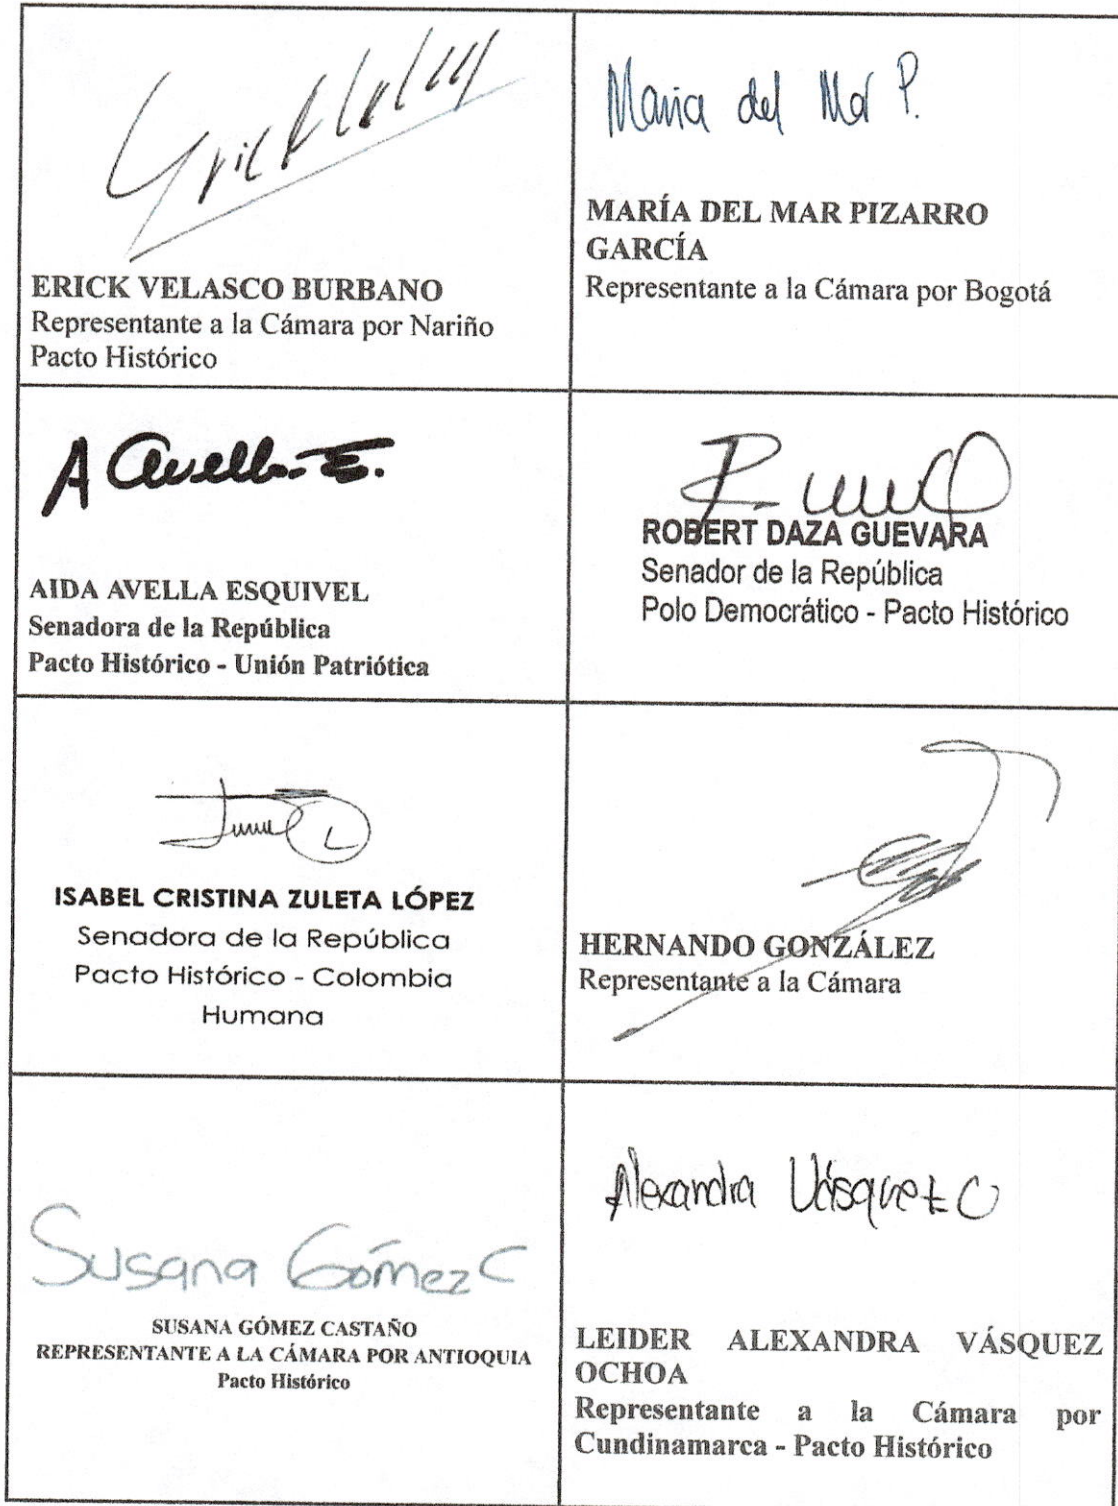 Maria del Mar P.
ERICK VELASCO BURBANO
Representante a la Cámara por Nariño
Pacto Histórico
MARÍA DEL MAR PIZARRO
GARCÍA
Representante a la Cámara por Bogotá
A Avella E.
AIDA AVELLA ESQUIVEL
Senadora de la República
Pacto Histórico - Unión Patriótica
ROBERT DAZA GUEVARA
Senador de la República
Polo Democrático - Pacto Histórico
ISABEL CRISTINA ZULETA LÓPEZ
Senadora de la República
Pacto Histórico - Colombia
Humana
HERNANDO GONZÁLEZ
Representante a la Cámara
Susana Gómez C
SUSANA GÓMEZ CASTAÑO
REPRESENTANTE A LA CÁMARA POR ANTIOQUIA
Pacto Histórico
Alexandra Vásquez O
LEIDER ALEXANDRA VÁSQUEZ
OCHOA
Representante a la Cámara por
Cundinamarca - Pacto Histórico